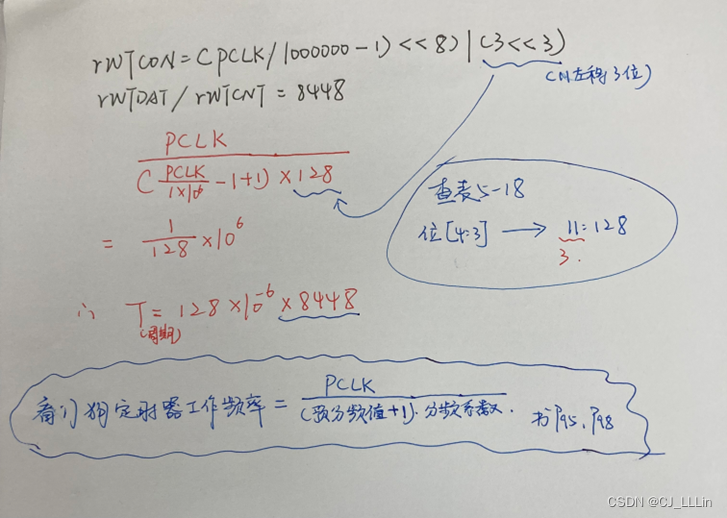 rWTCON = (PCLK/1000000-1)<<8)|(3<<3)
(N左移3位)
rWTDAT/rWTCNT = 8448
PCLK
(PCLK/1×10⁶ -1+1)×128
= 1/128 ×10⁶
查表5-18
位[4:3] → 11:128
3.
∴ T = 128×10⁻⁶×8448
(周期)
看门狗定时器工作频率 = PCLK/(预分频值+1)·分频系数. 书P95、P98
CSDN @CJ_LLLin